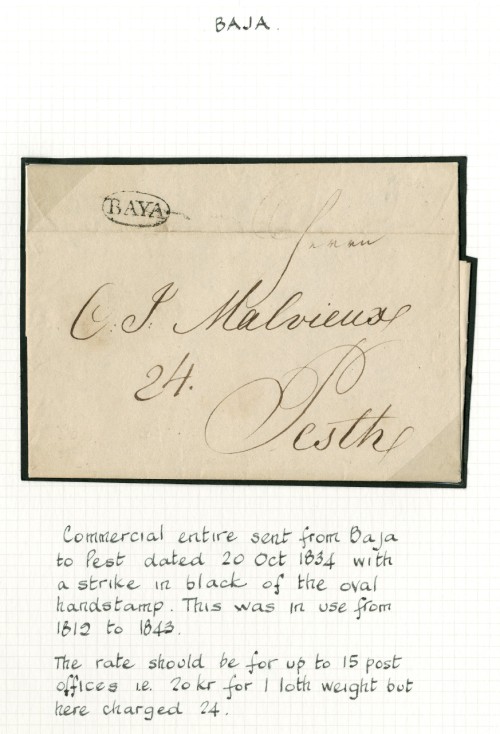 BAJA.
BAYA
C. J. Malvieux
24.
Pesth
Commercial entire sent from Baja
to Pest dated 20 Oct 1834 with
a strike in black of the oval
handstamp. This was in use from
1812 to 1843.
The rate should be for up to 15 post
offices i.e. 20 kr for 1 loth weight but
here charged 24.